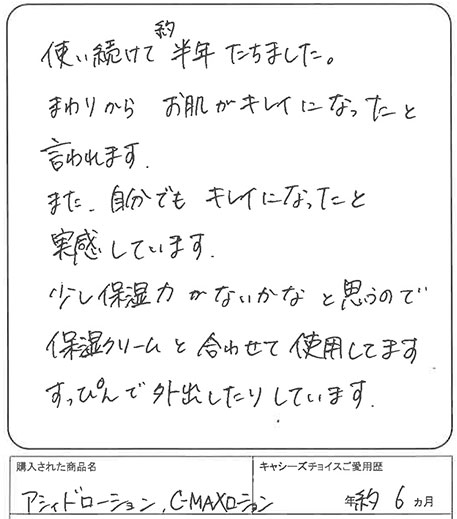 使い続けて約半年たちました。
まわりから お肌がキレイになったと
言われます.
また、自分でも キレイになったと
実感しています.
少し保湿力がないかなと思うので
保湿クリームと合わせて使用してます
すっぴんで外出したりしています.
購入された商品名 キャシーズチョイスご愛用歴
アシィドローション、C-MAXローション 年約6ヵ月